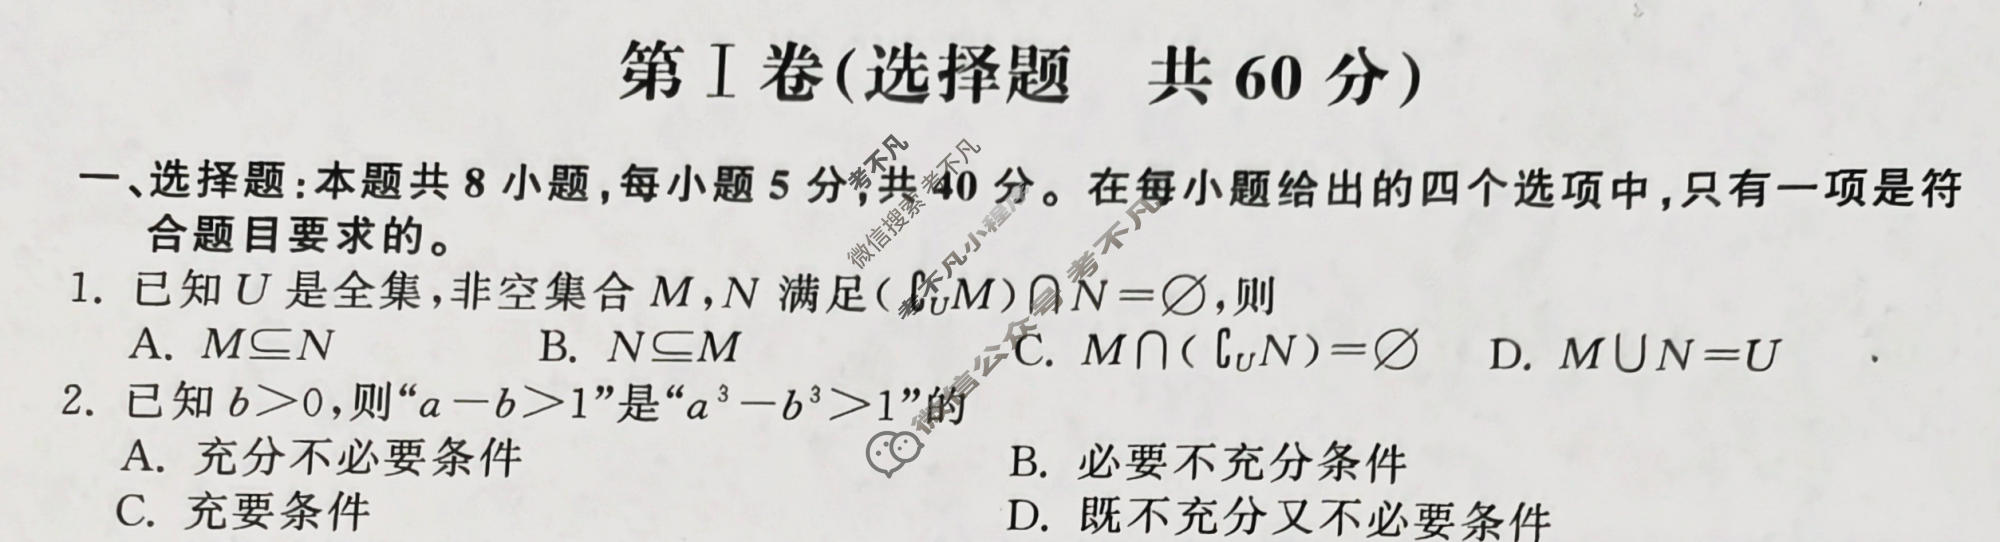 第Ⅰ卷(选择题 共60分)
一、选择题:本题共8小题,每小题5分,共40分。在每小题给出的四个选项中,只有一项是符
合题目要求的。
1. 已知U是全集,非空集合M,N满足(∁UM)∩N=∅,则
A. M⊆N B. N⊆M C. M∩(∁UN)=∅ D. M∪N=U
2. 已知b>0,则“a-b>1”是“a³-b³>1”的
A. 充分不必要条件 B. 必要不充分条件
C. 充要条件 D. 既不充分又不必要条件
考不凡
微信搜索 考不凡
考不凡小程序
微信公众号 考不凡